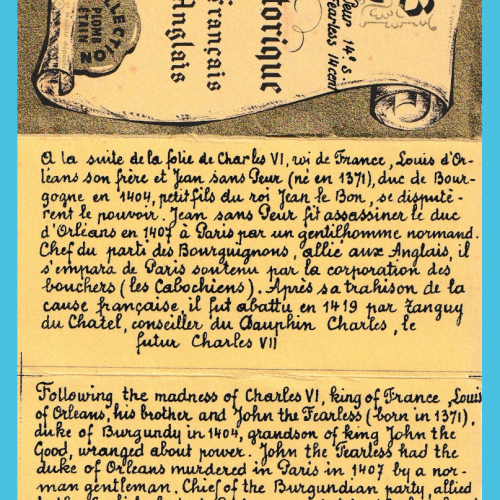 LLECTION
Historique
Français
Anglais
Peur 14e s.
Fearless 14 cen
A la suite de la folie de Charles VI, roi de France, Louis d'Or-
léans son frère et Jean sans Peur (né en 1371), duc de Bour-
gogne en 1404, petit fils du roi Jean le Bon, se disputè-
rent le pouvoir. Jean sans Peur fit assassiner le duc
d'Orléans en 1407 à Paris par un gentilhomme normand.
Chef du parti des Bourguignons, allié aux Anglais, il
s'empara de Paris soutenu par la corporation des
bouchers (les Cabochiens). Après sa trahison de la
cause française, il fut abattu en 1419 par Tanguy
du Chatel, conseiller du Dauphin Charles, le
futur Charles VII
Following the madness of Charles VI, king of France, Louis
of Orleans, his brother and John the Fearless (born in 1371),
duke of Burgundy in 1404, grandson of king John the
Good, wranged about power. John the Fearless had the
duke of Orleans murdered in Paris in 1407 by a nor-
man gentleman. Chief of the Burgundian party, allied